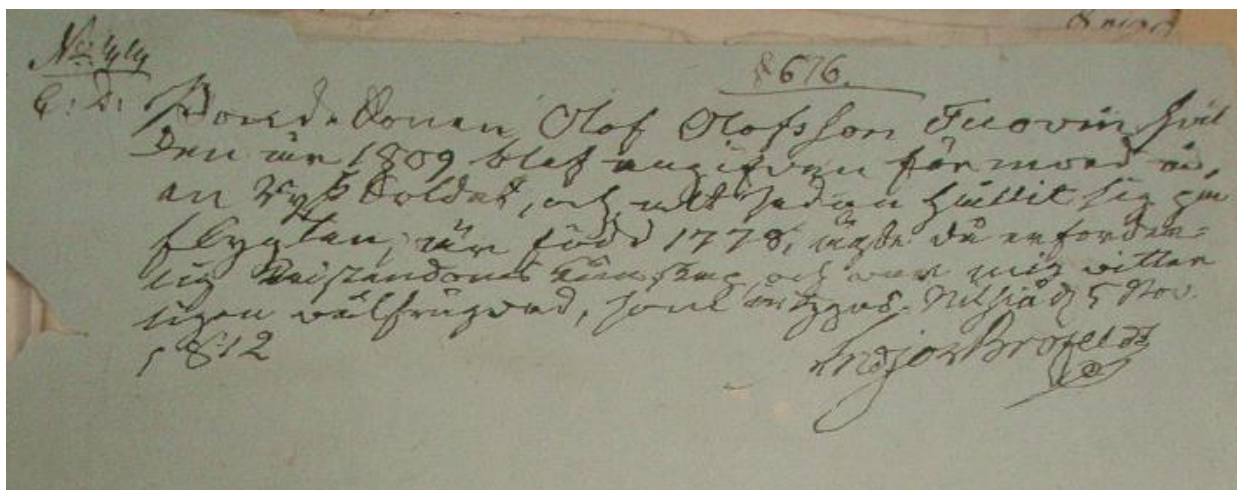 § 676.
E: D:
Bonde Sonen Olof Olofsson Tuovin hvil
den år 1809 blef angifven för mord å
en Rysk Soldat, och alt sedan hållit sig på
flygten, är född 1778, ägde då erforder=
lig Christendoms kunskap och var mig vitter
ligen välfrägdad, som attesteras. Nilsiä d 5 Nov.
1812
Brofeldt